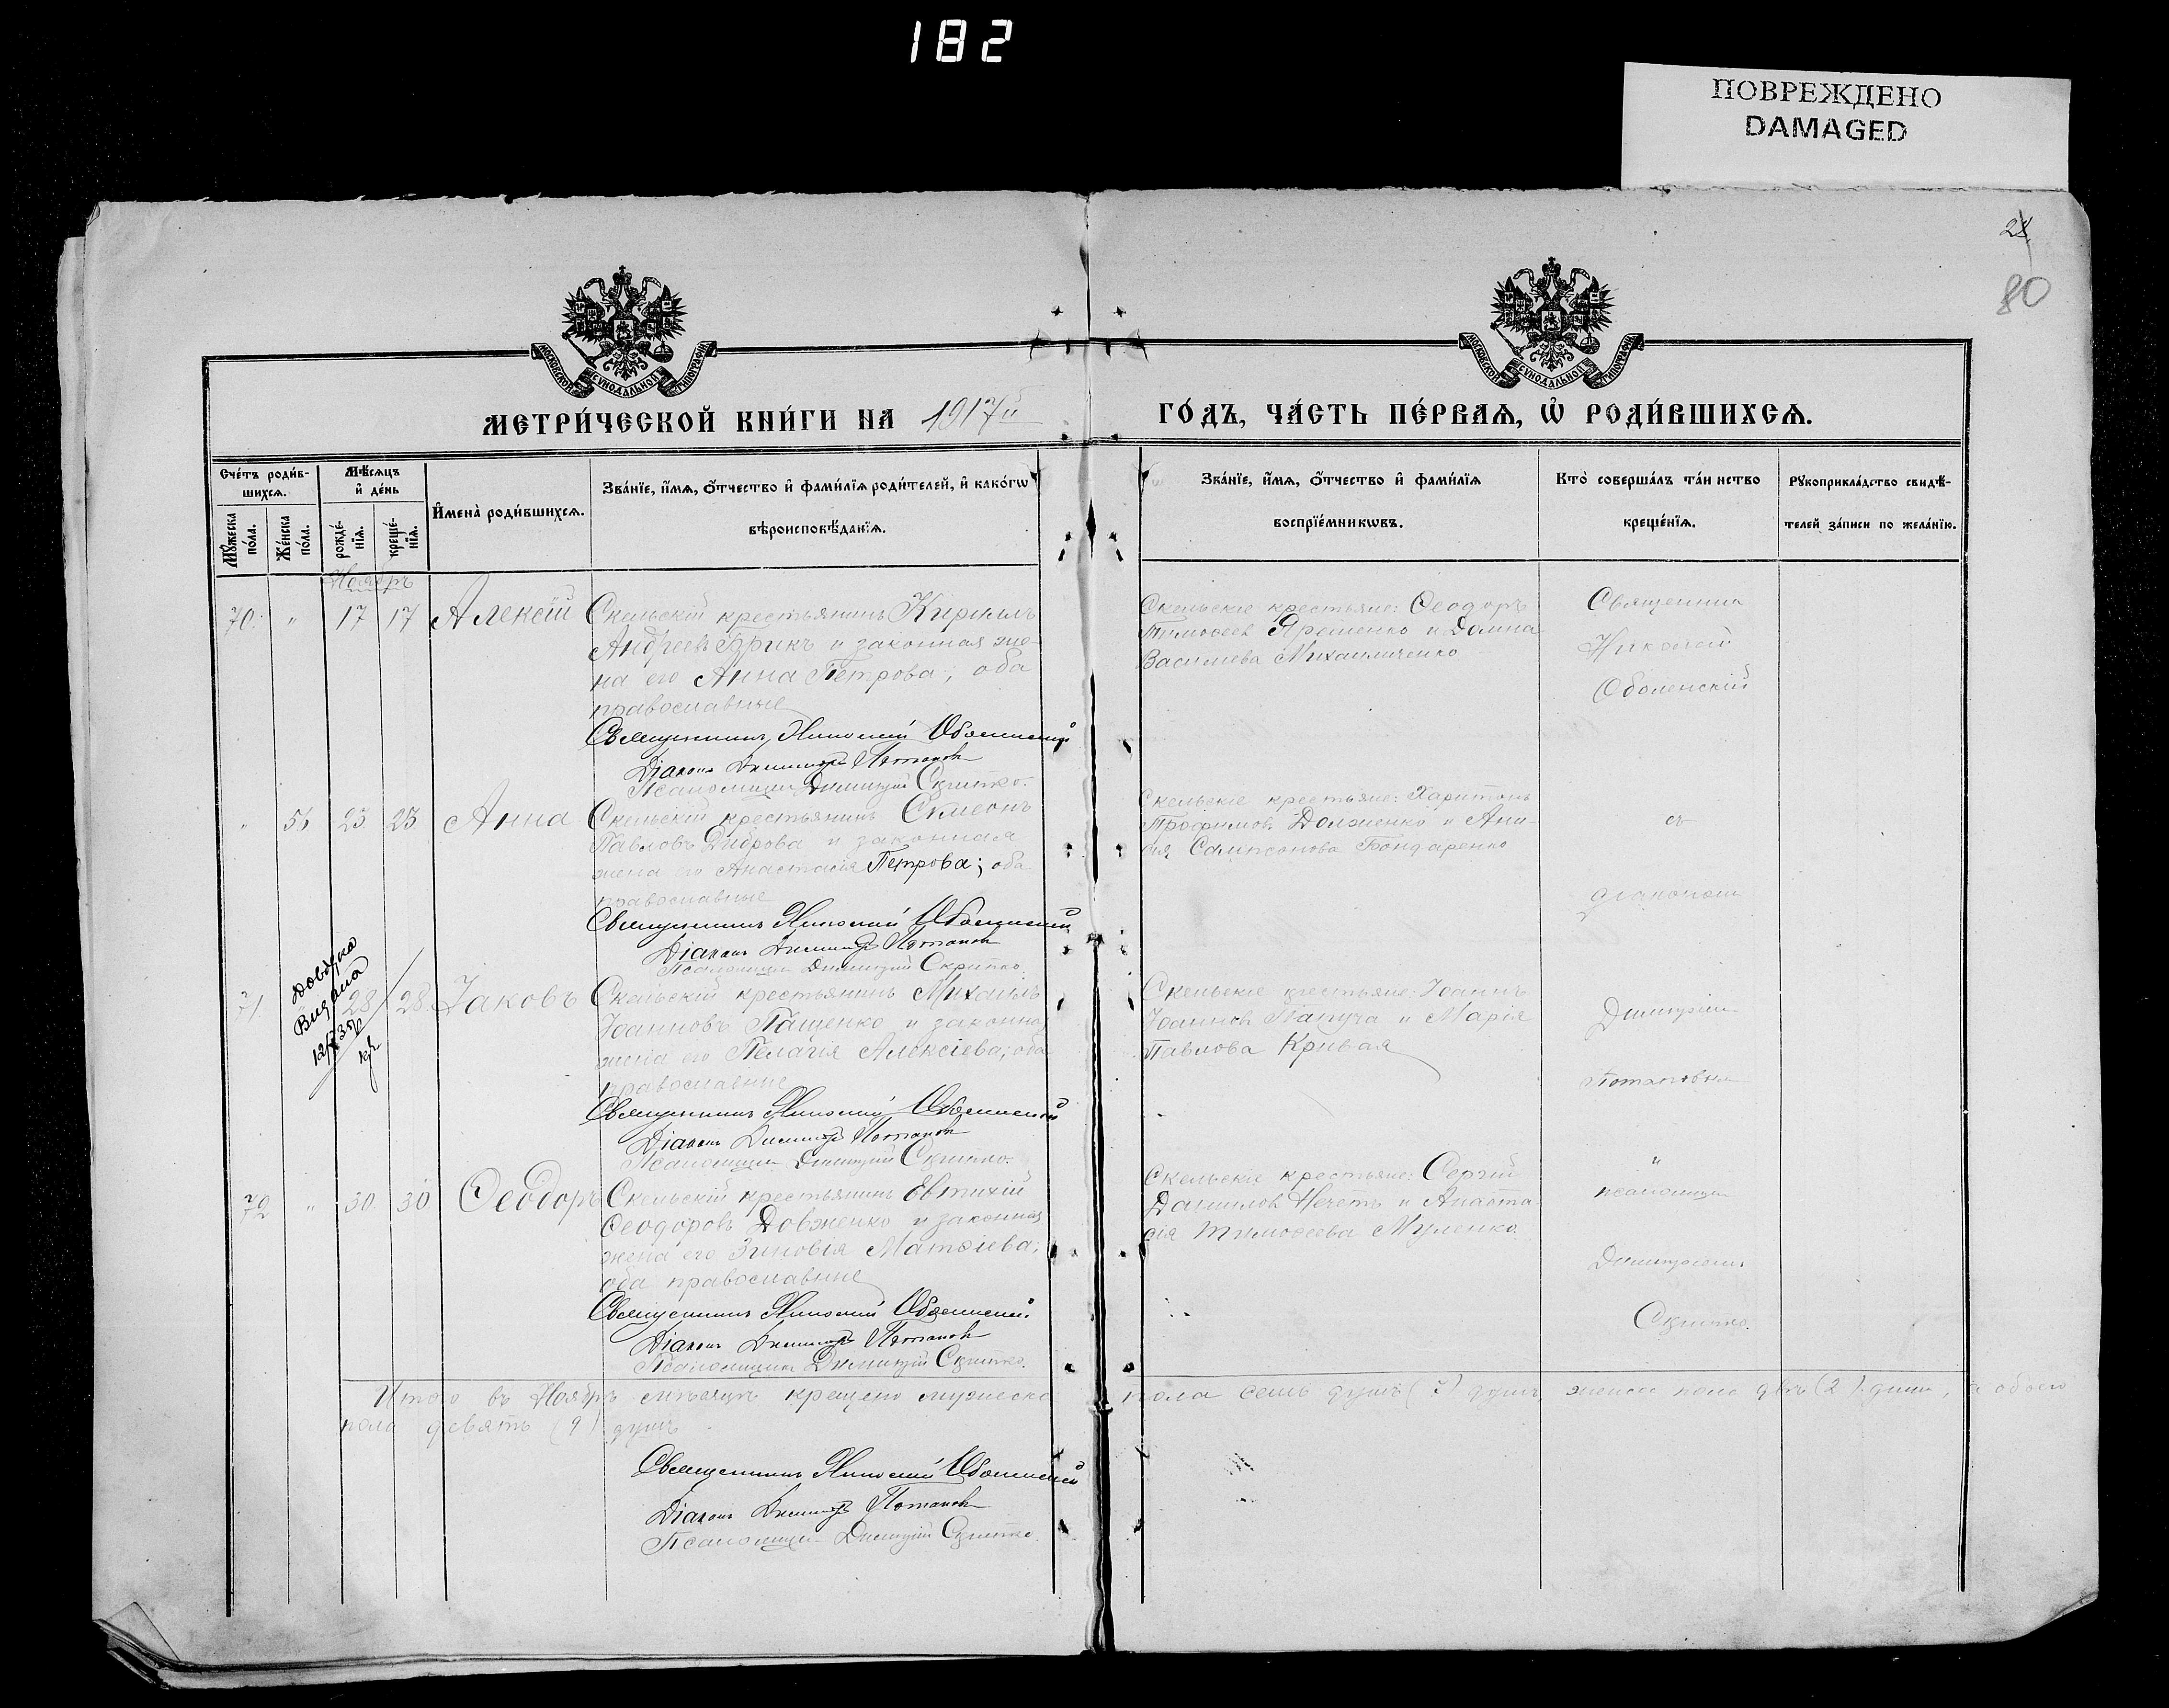 182
ПОВРЕЖДЕНО
DAMAGED
24
80
МОСКОВСКОЙ СѴНОДАЛЬНОЙ ТИПОГРАФІИ
МОСКОВСКОЙ СѴНОДАЛЬНОЙ ТИПОГРАФІИ
МЕТРИ́ЧЕСКОЙ КНИ́ГИ НА 1917й ГО́ДЪ, ЧА́СТЬ ПЕ́РВАѦ, Ѡ҆ РОДИ́ВШИХСѦ.
Сче́тъ роди́в-
шихсѧ.
Мѣ́сѧцъ
и҆ де́нь
Мꙋ́жеска по́ла.
Же́нска по́ла.
рожде́-
нїѧ.
креще́-
нїѧ.
И҆мена̀ роди́вшихсѧ.
Зва́нїе, и҆́мѧ, ѻ҆́тчество и҆ фами́лїѧ роди́телей, и҆ како́гѡ
вѣроисповѣ́данїѧ.
Зва́нїе, и҆́мѧ, ѻ҆́тчество и҆ фами́лїѧ
воспрїе́мникѡвъ.
Кто̀ соверша́лъ та́инство
креще́нїѧ.
Рꙋкоприкла́дство свидѣ́-
телей за́писи по жела́нїю.
Ноябрь
70. " 17 17 Алексій
Скельскій крестьянинъ Кириллъ
Андреевъ и законная же-
на его Анна Петрова; оба
православные
Священникъ Николай Оболенскій
Діаконъ Димитрій Потаповъ
Псаломщикъ Димитрій Скрипко.
Скельскіе крестьяне: Ѳеодоръ
Тимоѳеев Яременко и Домна
Василиева Михайличенко
Священник
Николай
Оболенскій
" 23 23 Анна
Скельскій крестьянинъ Симеонъ
Павловъ Диброва и законная
жена его Анастасія Петрова; оба
православные
Священникъ Николай Оболенскій
Діаконъ Димитрій Потаповъ
Псаломщикъ Димитрій Скрипко.
Скельскіе крестьяне: Харитонъ
Трофимовъ Долженко и
Сампсонова Бондаренко
съ
діакономъ
71. 28 28 Іаковъ
Довідка
Видана
Скельскій крестьянинъ Михаилъ
Іоанновъ Пащенко и законна
жена его Пелагія Алексіева; оба
православные
Священникъ Николай Оболенскій
Діаконъ Димитрій Потаповъ
Псаломщикъ Димитрій Скрипко.
Скельскіе крестьяне: Іоаннъ
Іоаннов Папуча и Марія
Павлова Кривая
Димитріем
Потаповым
72 " 30 30 Ѳеодоръ
Скельскій крестьянинъ Евтихій
Ѳеодоровъ Довженко и законная
жена его Зиновія Матѳіева;
оба православные
Священникъ Николай Оболенскій
Діаконъ Димитрій Потаповъ
Псаломщикъ Димитрій Скрипко.
Скельскіе крестьяне: Сергій
Данилов Нечет и Анаста-
сія Тимоѳеева Муленко.
и
псаломщик
Димитріем
Скрипко.
Итого въ Ноябрѣ мѣсяцѣ крещено мужеска пола семь душъ (7) душъ, женска пола двѣ (2) души, а обоего
пола девять (9) душъ
Священникъ Николай Оболенскій
Діаконъ Димитрій Потаповъ
Псаломщикъ Димитрій Скрипко.